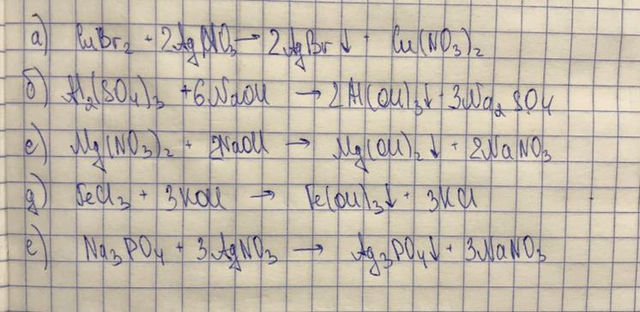 а) CuBr₂ + 2AgNO₃ → 2AgBr↓ + Cu(NO₃)₂
б) Al₂(SO₄)₃ + 6NaOH → 2Al(OH)₃↓ + 3Na₂SO₄
е) Mg(NO₃)₂ + 2NaOH → Mg(OH)₂↓ + 2NaNO₃
д) FeCl₃ + 3KOH → Fe(OH)₃↓ + 3KCl
е) Na₃PO₄ + 3AgNO₃ → Ag₃PO₄↓ + 3NaNO₃